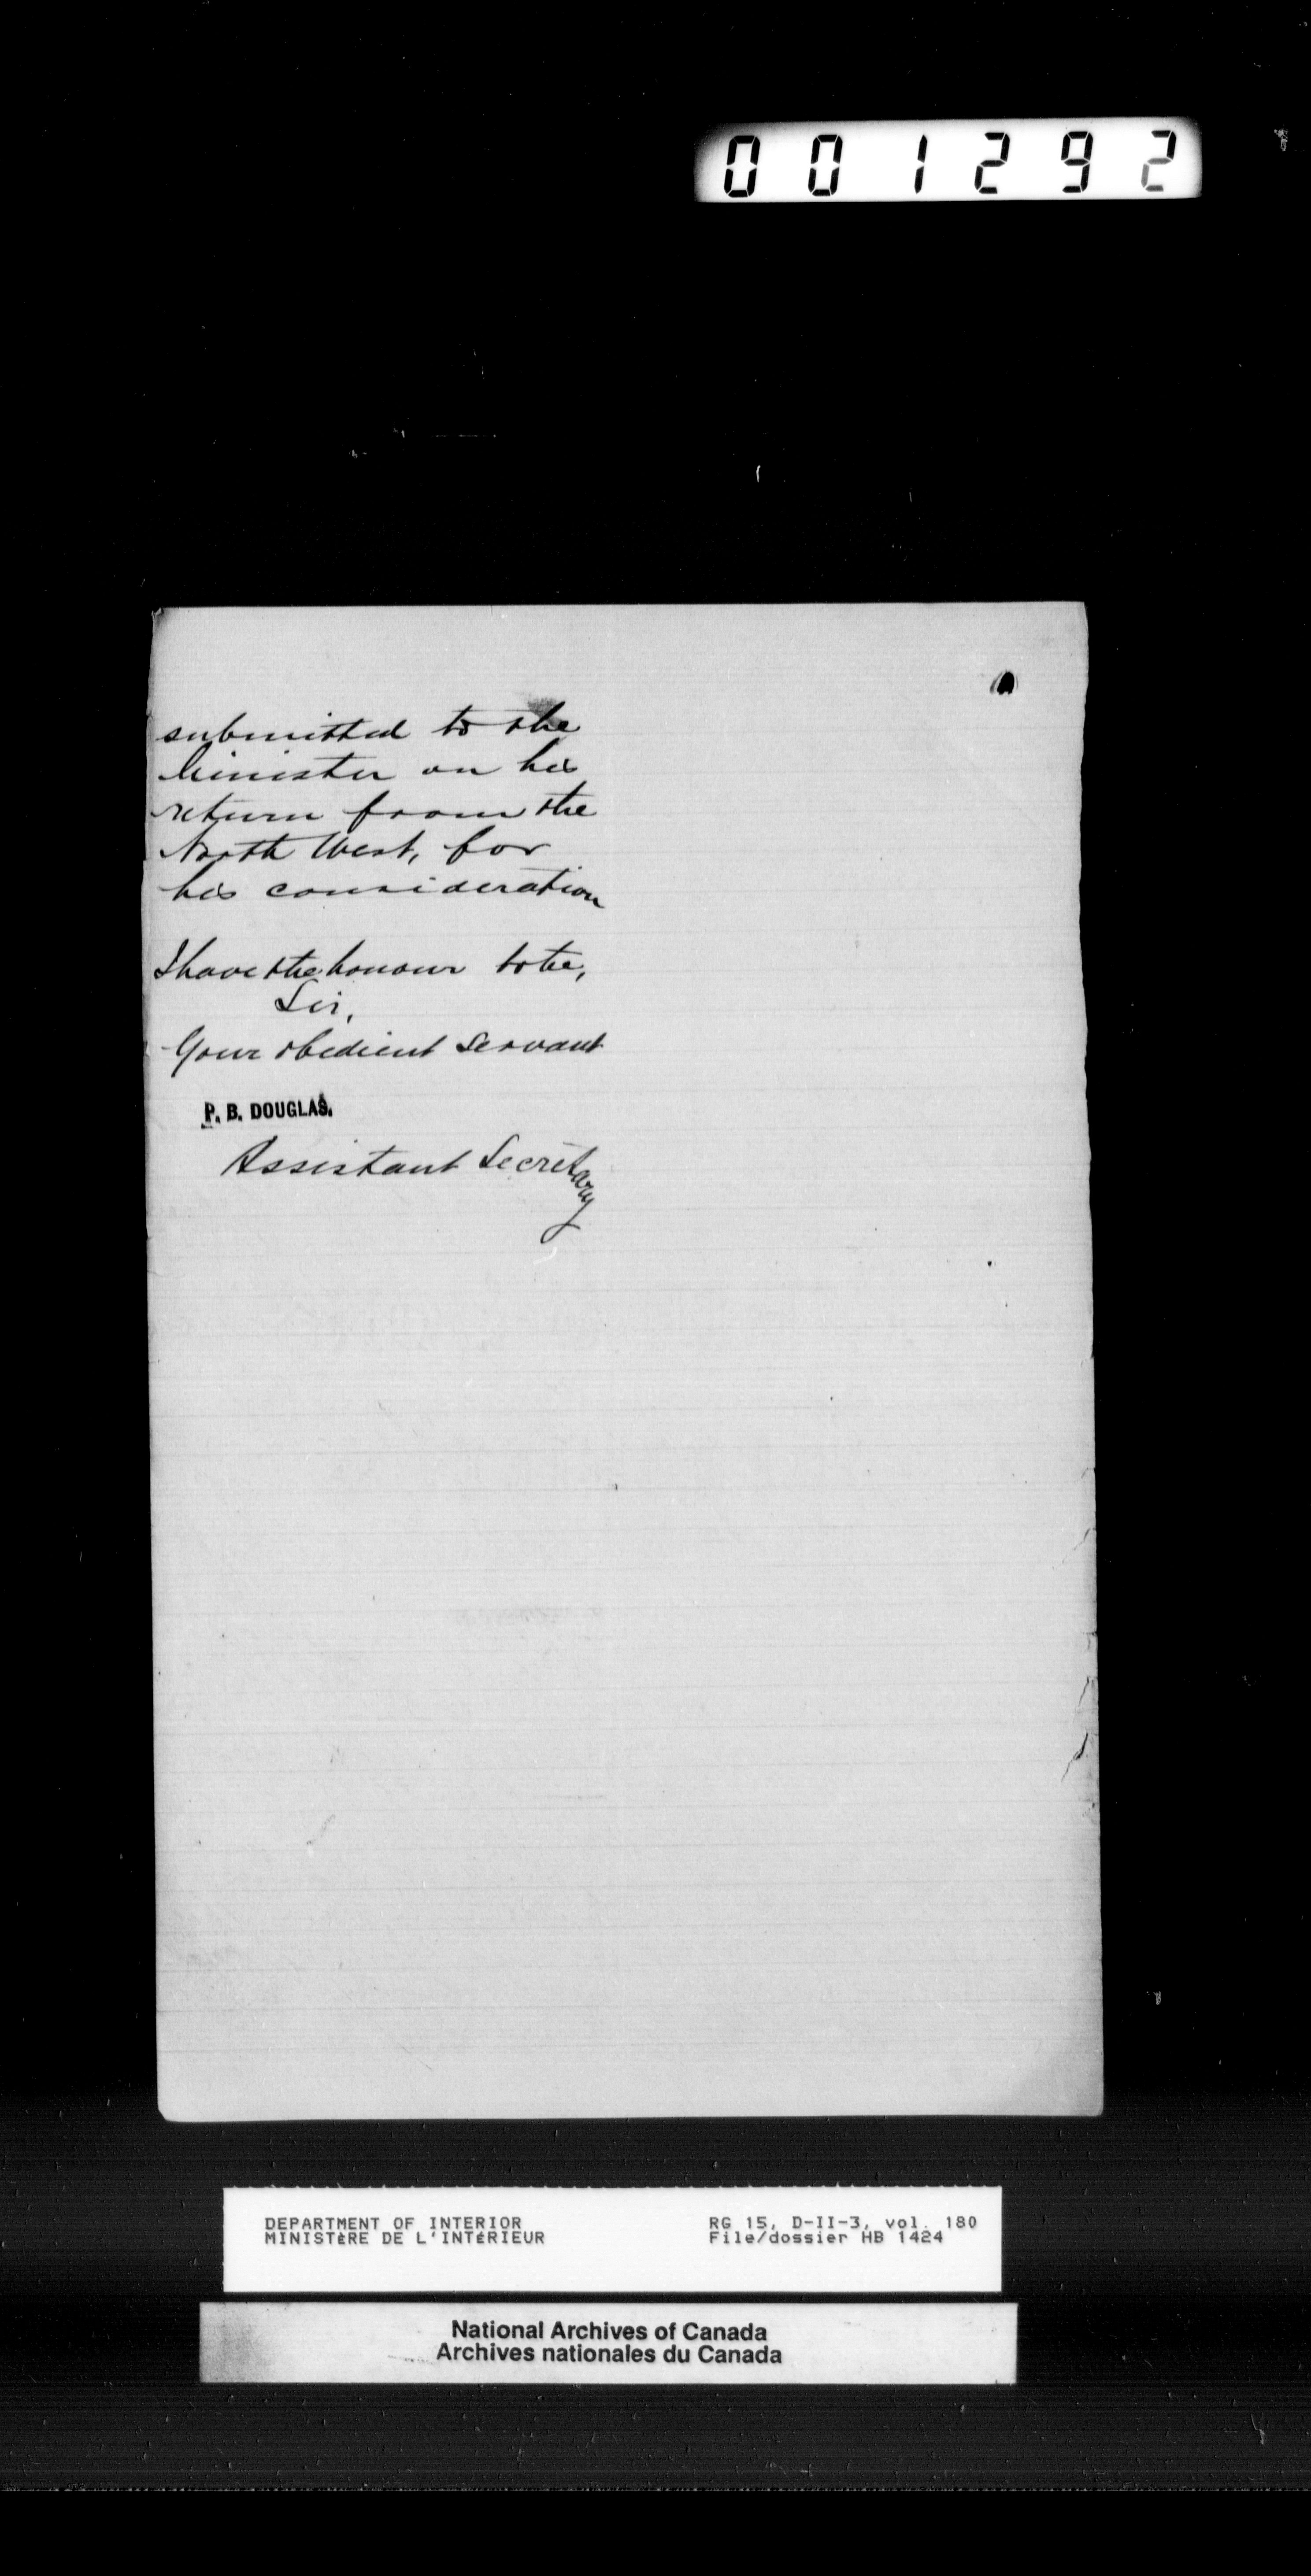 001292
submitted to the
Minister on his
return from the
North West, for
his consideration
I have the honour to be,
Sir,
Your obedient servant
P. B. DOUGLAS.
Assistant Secretary
DEPARTMENT OF INTERIOR
MINISTÈRE DE L'INTÉRIEUR
RG 15, D-II-3, vol. 180
File/dossier HB 1424
National Archives of Canada
Archives nationales du Canada